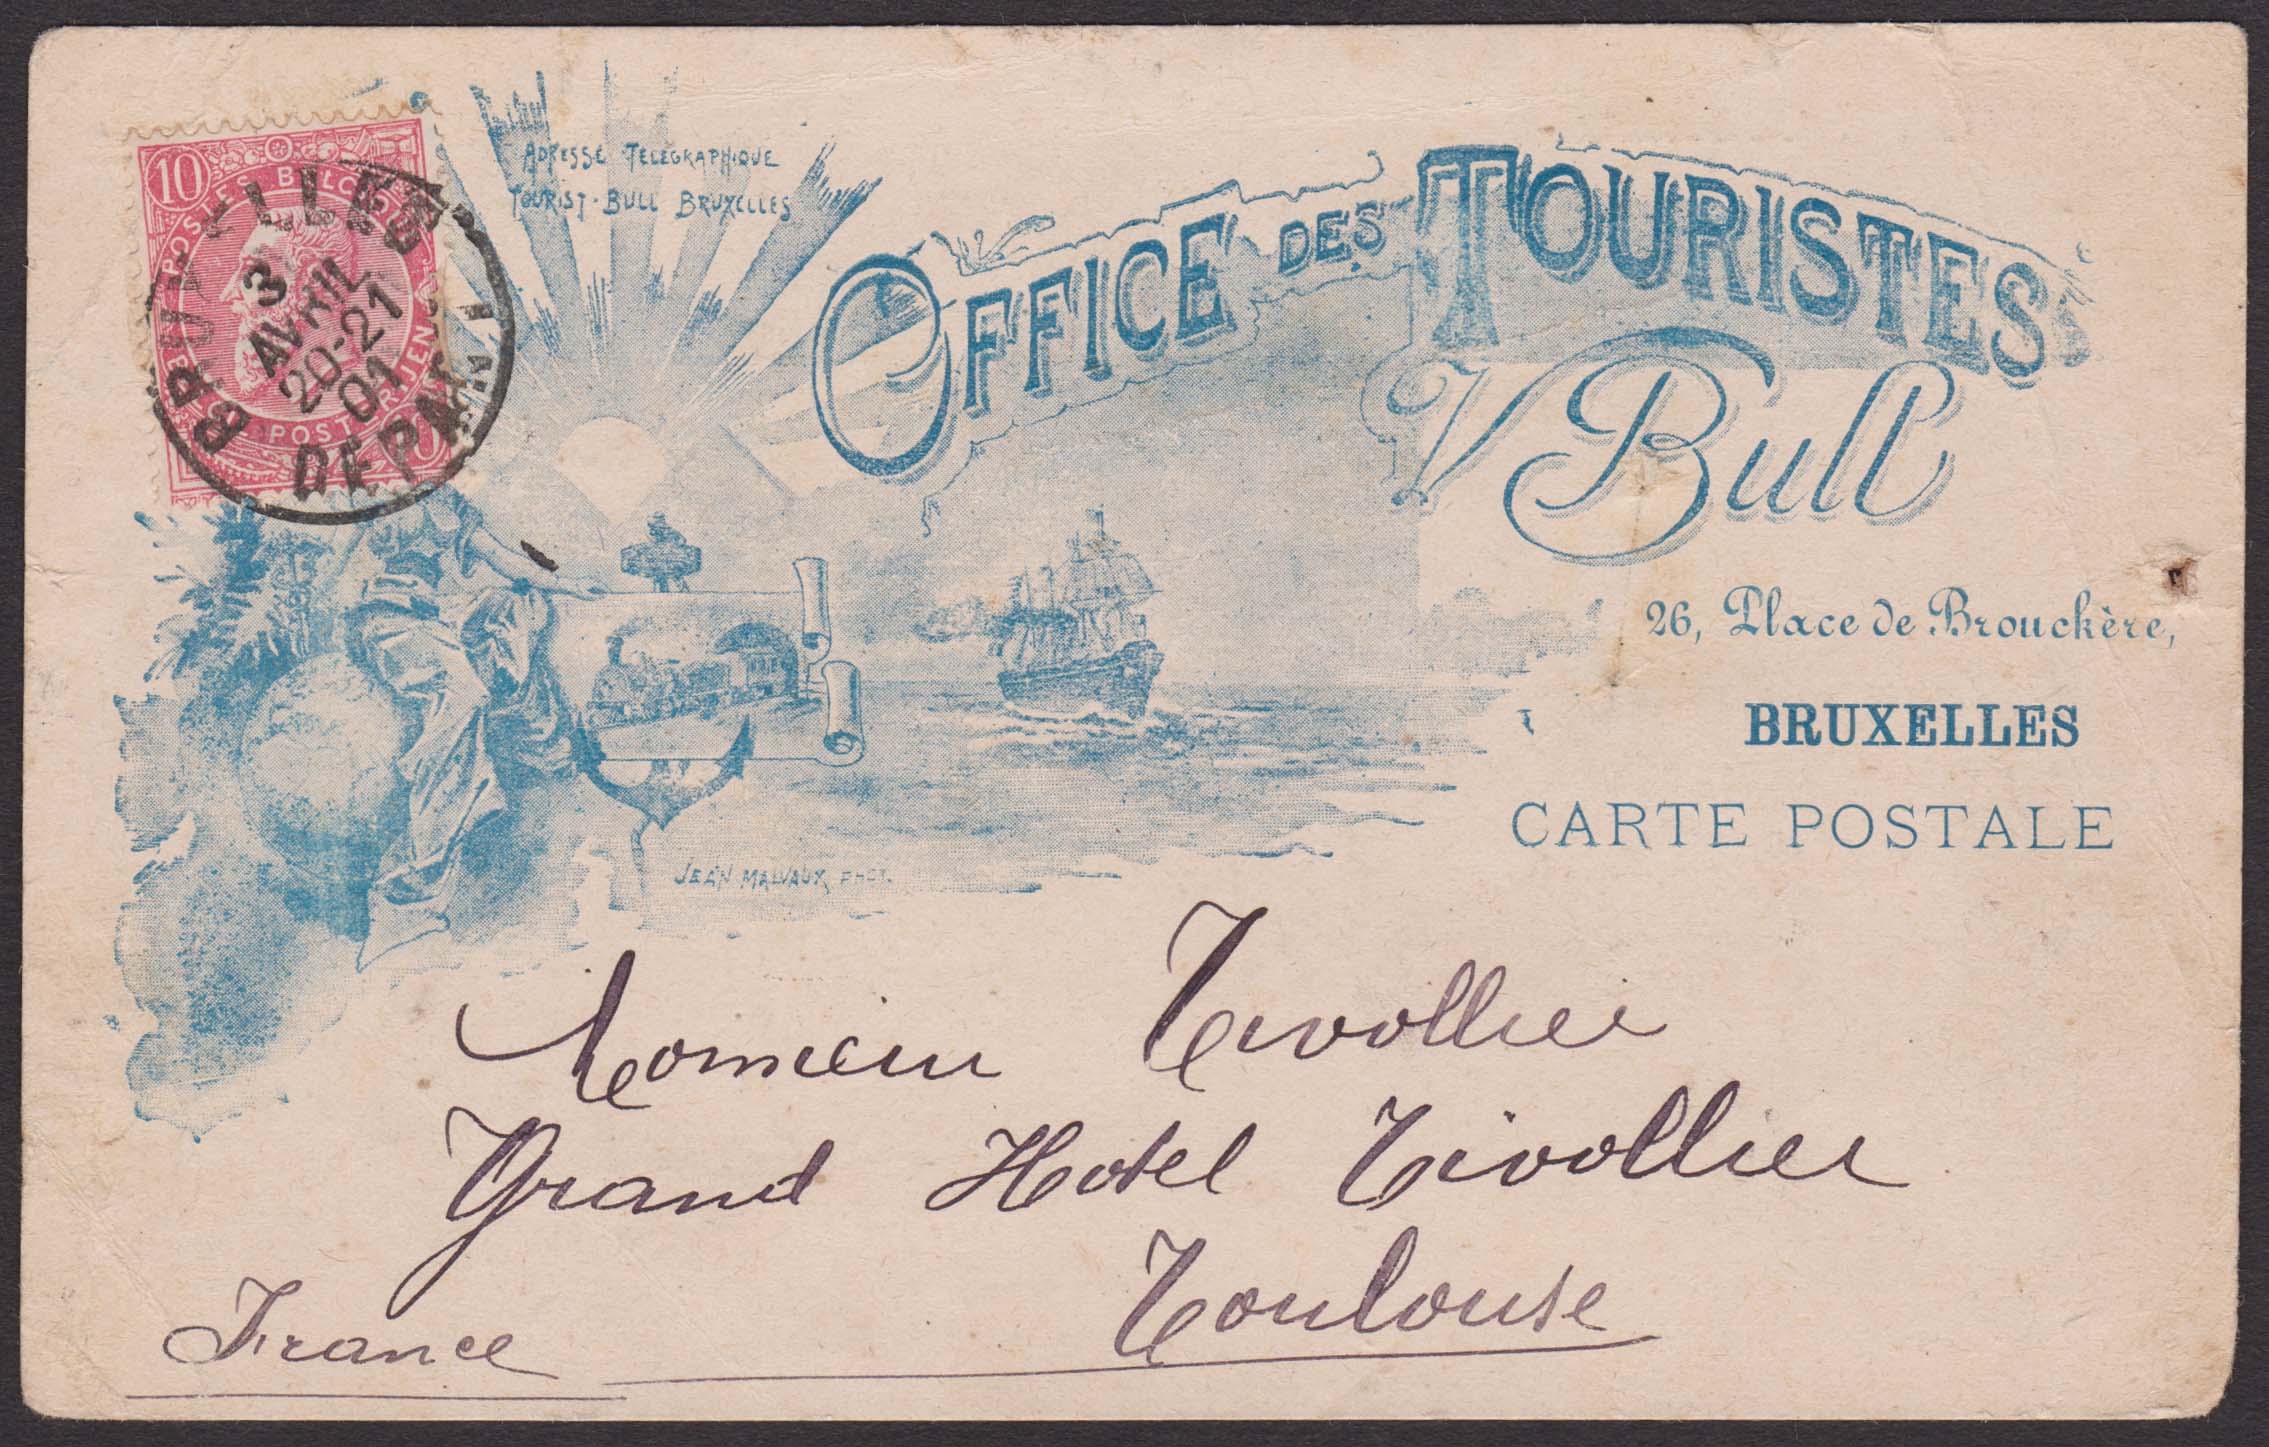 10
POSTES BELGIQUE
POSTERIJEN
BRUXELLES
3
AVRIL
20-21
01
DEPART
ADRESSE TÉLÉGRAPHIQUE
TOURIST-BULL BRUXELLES
OFFICE DES TOURISTES
V Bull
26, Place de Brouckère,
BRUXELLES
CARTE POSTALE
JEAN MALVAUX PHOT.
Monsieur Tivollier
Grand Hotel Tivollier
Toulouse
France